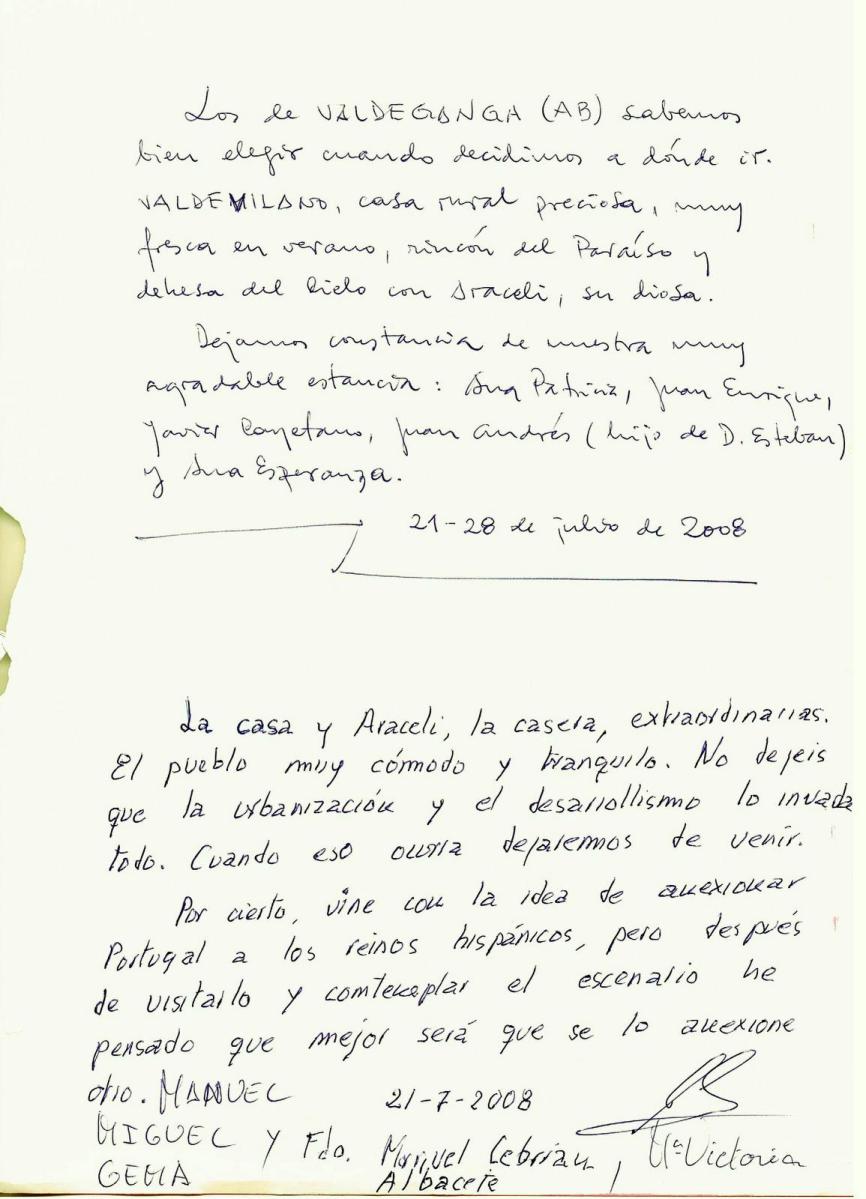 Los de VALDEGANGA (AB) sabemos
bien elegir cuando decidimos a dónde ir.
VALDEMILANO, casa rural preciosa, muy
fresca en verano, rincón del Paraíso y
dehesa del Cielo con Araceli, su diosa.
Dejamos constancia de nuestra muy
agradable estancia: Ana Patricia, Juan Enrique,
Javier Cayetano, Juan Andrés (hijo de D. Esteban)
y Ana Esperanza.
21-28 de julio de 2008
La casa y Araceli, la casera, extraordinarias.
El pueblo muy cómodo y tranquilo. No dejeis
que la urbanización y el desarrollismo lo invada
todo. Cuando eso ocurra dejaremos de venir.
Por cierto, vine con la idea de anexionar
Portugal a los reinos hispánicos, pero después
de visitarlo y comtemplar el escenario he
pensado que mejor será que se lo anexione
otro. MANUEL
21-7-2008
MIGUEL y Fdo. Manuel Cebrián, Mª Victoria
GEMA Albacete